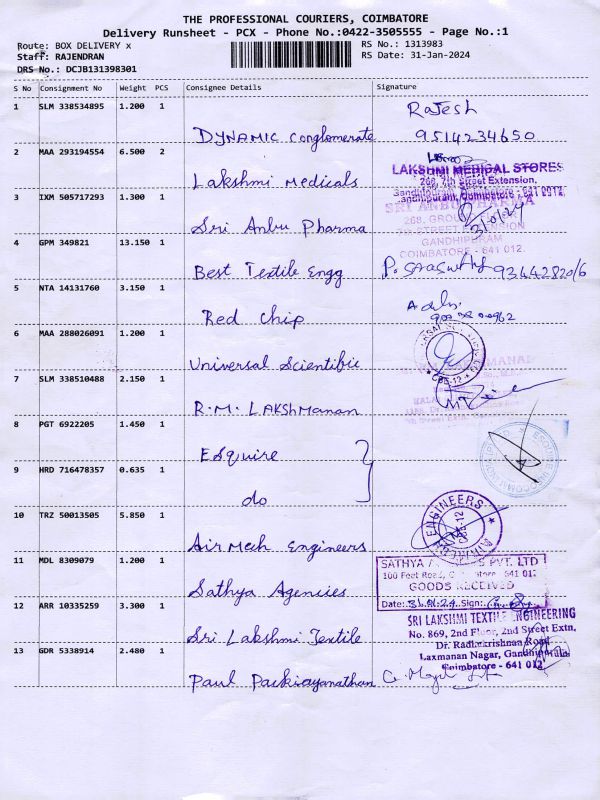 THE PROFESSIONAL COURIERS, COIMBATORE
Delivery Runsheet - PCX - Phone No.:0422-3505555 - Page No.:1
Route: BOX DELIVERY x
RS No.: 1313983
Staff: RAJENDRAN
RS Date: 31-Jan-2024
DRS No.: DCJB131398301
S No Consignment No Weight PCS Consignee Details Signature
1 SLM 338534895 1.200 1
Rajesh
DYNAMIC Conglomerate 9514234650
2 MAA 293194554 6.500 2
LAKSHMI MEDICAL STORES
268, 7th Street Extension,
Gandhipuram, Coimbatore - 641 012.
Lakshmi Medicals
3 IXM 505717293 1.300 1
SRI ANBU PHARMA
268, GROUND
STREET EXTENSION
GANDHIPURAM
COIMBATORE - 641 012.
Sri Anbu Pharma
4 GPM 349821 13.150 1
Best Textile Engg P. Saraswathi
5 NTA 14131760 3.150 1
Red Chip
6 MAA 288026091 1.200 1
Universal Scientific
7 SLM 338510488 2.150 1
R.M. LAKSHMANAN
8 PGT 6922205 1.450 1
Esquire
9 HRD 716478357 0.635 1
do
10 TRZ 50013505 5.850 1
ENGINEERS
CBE-12
AIRMECH
Air Mech Engineers
11 MDL 8309079 1.200 1
SATHYA AGENCIES PVT. LTD
100 Feet Road, Coimbatore - 641 012
GOODS RECEIVED
Date: 31.01.24 Sign:
Sathya Agencies
12 ARR 10335259 3.300 1
SRI LAKSHMI TEXTILE ENGINEERING
No. 869, 2nd Floor, 2nd Street Extn.
Dr. Radhakrishnan Road
Laxmanan Nagar, Gandhi
Coimbatore - 641 012
Sri Lakshmi Textile
13 GDR 5338914 2.480 1
Paul Packiayanathan